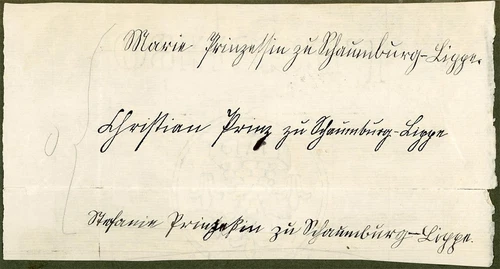 Marie Prinzessin zu Schaumburg-Lippe.
Christian Prinz zu Schaumburg-Lippe
Stefanie Prinzeßin zu Schaumburg-Lippe.